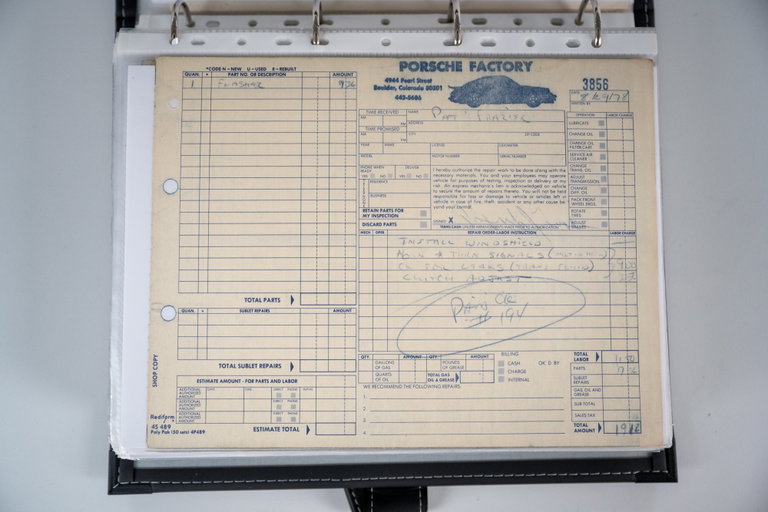 *CODE N - NEW U - USED R - REBUILT
QUAN. * PART NO. OR DESCRIPTION AMOUNT
1 FLASHER 7 26
TOTAL PARTS
QUAN. SUBLET REPAIRS AMOUNT
TOTAL SUBLET REPAIRS
ESTIMATE AMOUNT - FOR PARTS AND LABOR
ADDITIONAL AUTHORIZED AMOUNT DATE TIME DIRECT PHONE INITIAL
ADDITIONAL AUTHORIZED AMOUNT DIRECT PHONE
ADDITIONAL AUTHORIZED AMOUNT DIRECT PHONE
ESTIMATE TOTAL
SHOP COPY
Rediform
4S 489
Poly Pak (50 sets) 4P489
PORSCHE FACTORY
4944 Pearl Street
Boulder, Colorado 80301
442-5686
3856
DATE
WRITTEN BY
TIME RECEIVED NAME
AM PM ADDRESS
TIME PROMISED
AM PM CITY ZIP CODE
YEAR MAKE LICENSE ODOMETER
MODEL MOTOR NUMBER SERIAL NUMBER
PHONE WHEN READY DELIVER
YES NO YES NO
RESIDENCE
BUSINESS
RETAIN PARTS FOR MY INSPECTION
DISCARD PARTS
I hereby authorize the repair work to be done along with the
necessary materials. You and your employees may operate
vehicle for purposes of testing, inspection or delivery at my
risk. An express mechanics lien is acknowledged on vehicle
to secure the amount of repairs thereto. You will not be held
responsible for loss or damage to vehicle or articles left in
vehicle in case of fire, theft, accident or any other cause beyond your control.
SIGNED X
TERMS CASH UNLESS ARRANGEMENTS MADE PRIOR TO AUTHORIZATION
OPERATION LABOR CHARGE
LUBRICATE
CHANGE OIL
CHANGE OIL FILTER CART.
SERVICE AIR CLEANER
CHANGE TRANS. OIL
ADJUST TRANSMISSION
CHANGE DIFF. OIL
PACK FRONT WHEEL BRGS.
ROTATE TIRES
ADJUST BRAKES
MECH. OPER. REPAIR ORDER-LABOR INSTRUCTION LABOR CHARGE
INSTALL WINDSHIELD
TURN SIGNALS
CLUTCH ADJUST
PAID CK
# 194
QTY. AMOUNT QTY. AMOUNT
GALLONS OF GAS POUNDS OF GREASE
QUARTS OF OIL TOTAL GAS OIL & GREASE
BILLING
CASH
CHARGE
INTERNAL
OK'D BY
WE RECOMMEND THE FOLLOWING REPAIRS:
1
2
3
4
TOTAL LABOR
PARTS
SUBLET REPAIRS
GAS, OIL AND GREASE
SUB TOTAL
SALES TAX
TOTAL AMOUNT